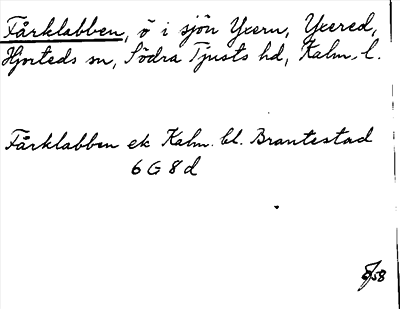 Fårklabben, ö i sjön Yxern, Yxered,
Hjorteds sn, Södra Tjusts hd, Kalm. l.
Fårklabben ek Kalm. bl. Brantestad
6 G 8 d
58